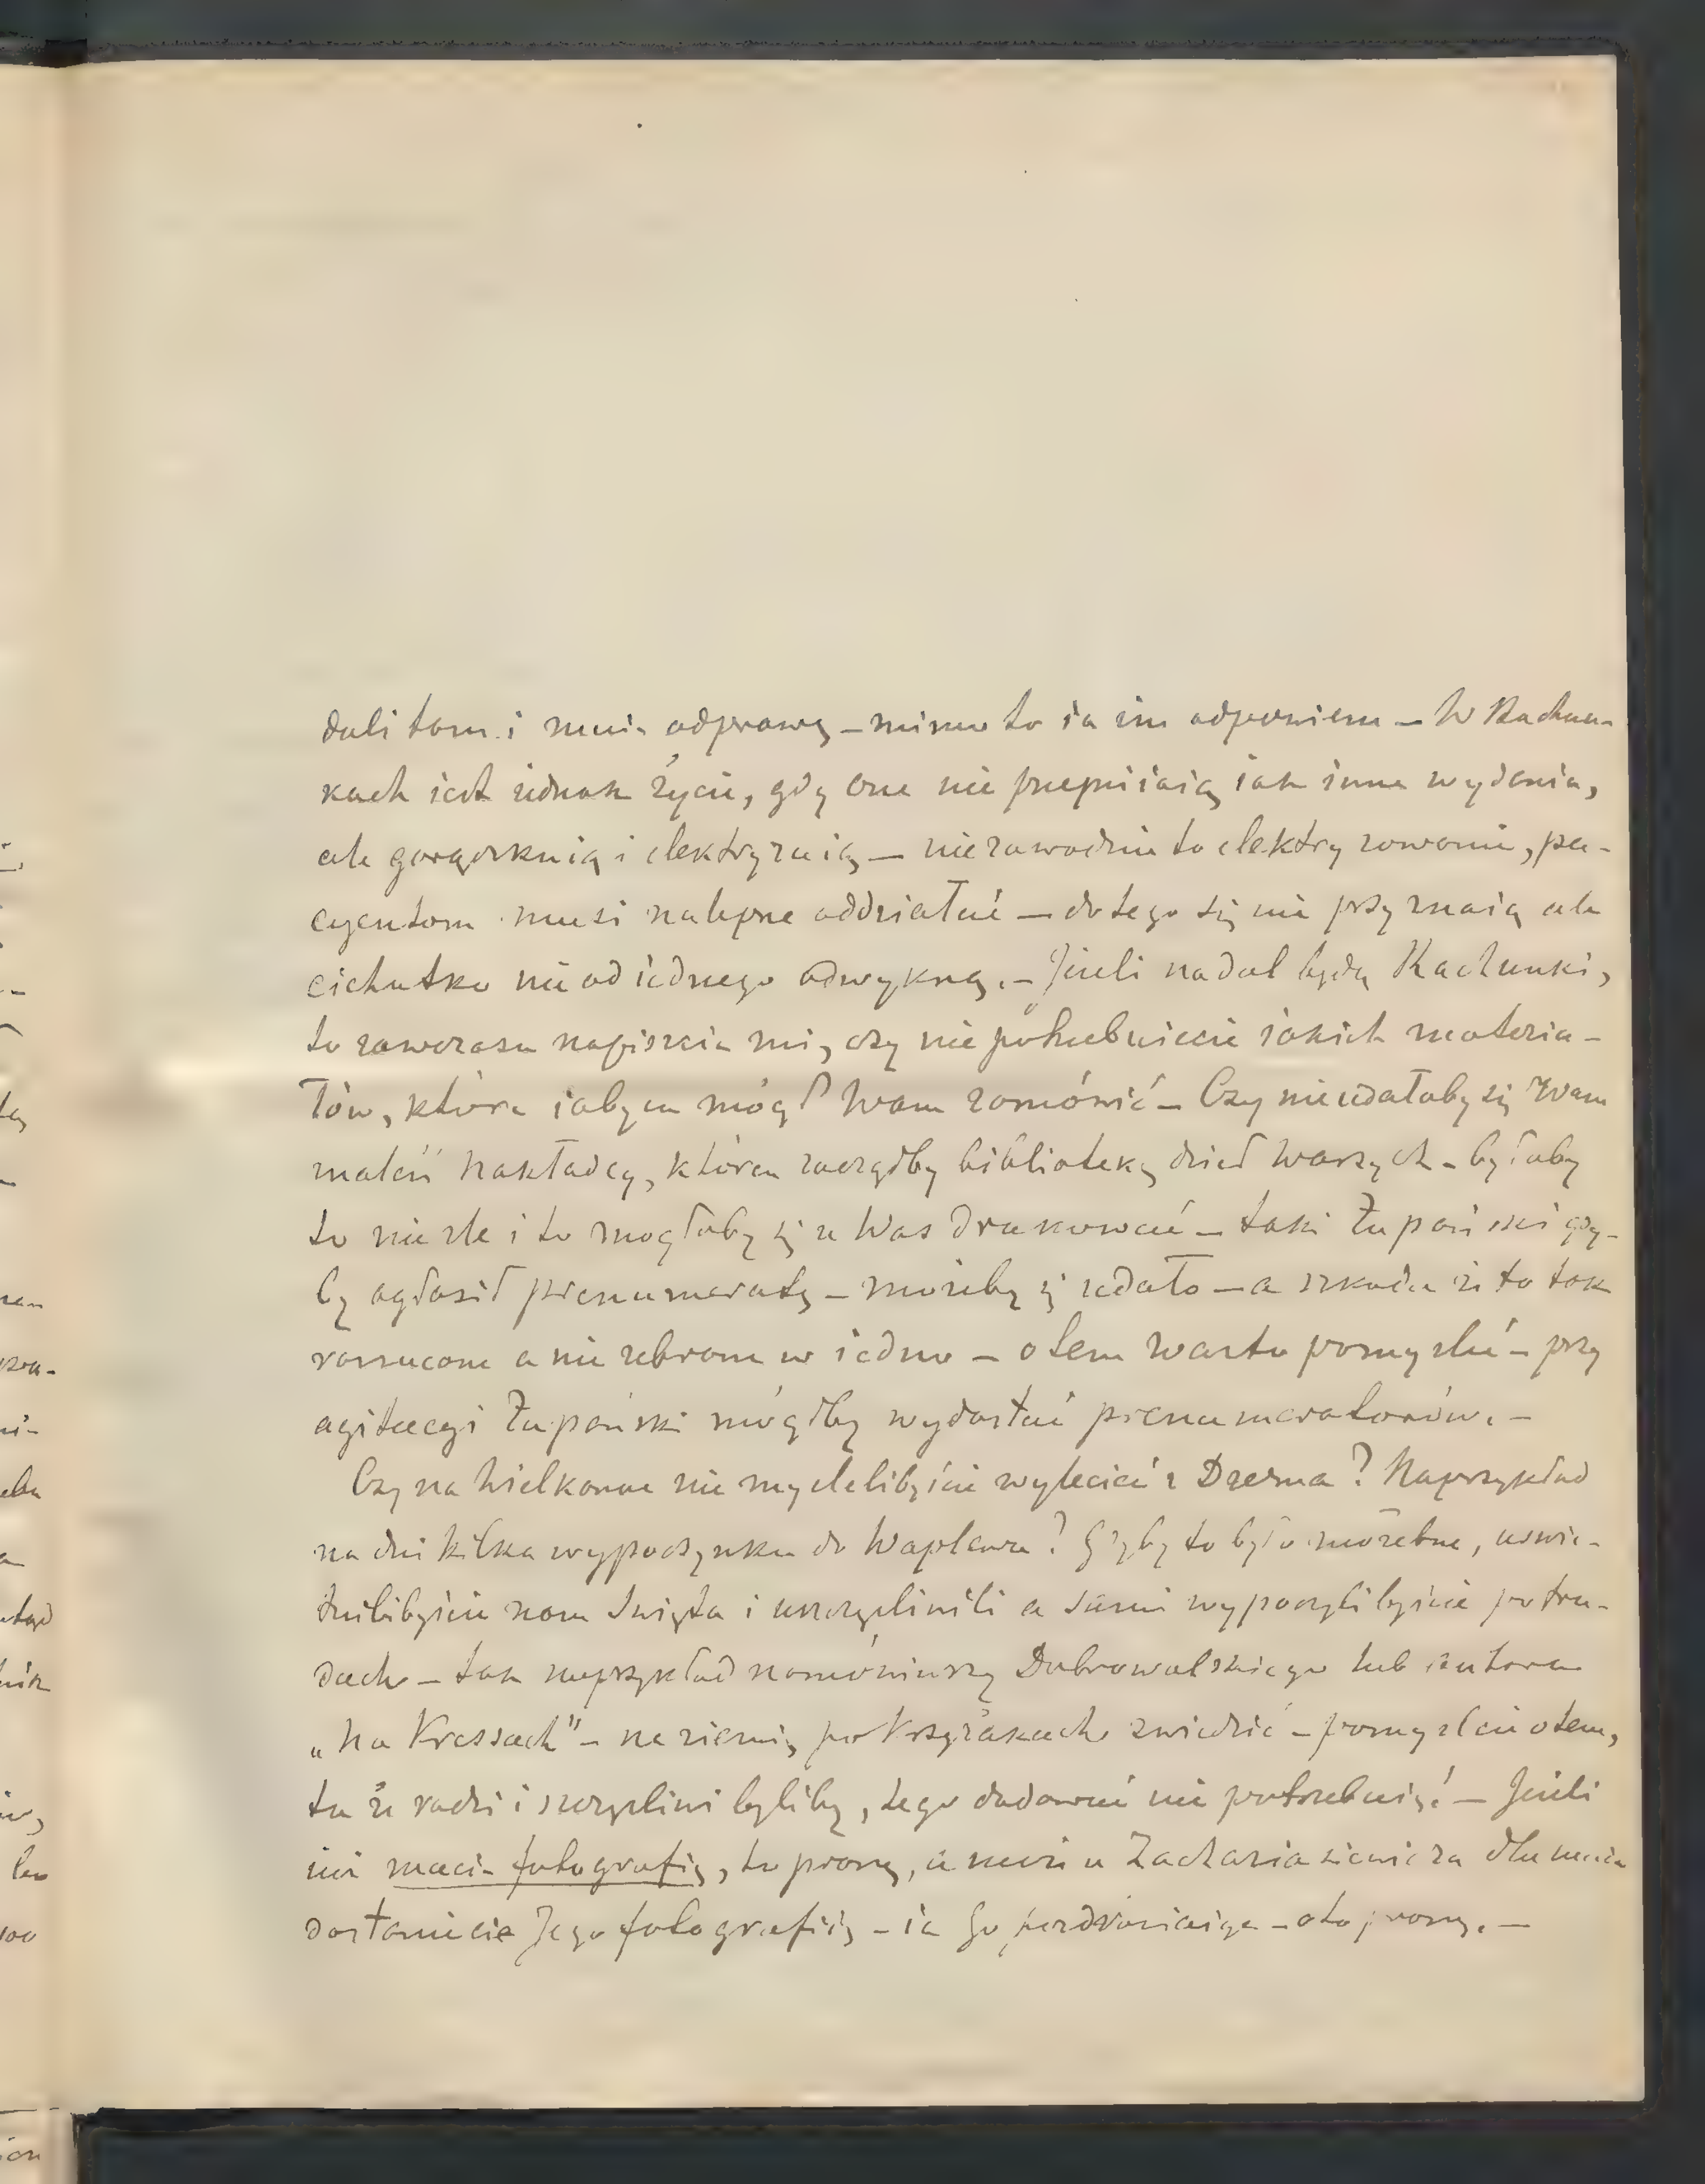 dali tam i mnie odprawę – mimo to ia im odpowiem – W Rachun-
kach iest iednak życie, gdy one nie przepisują iak inne wydania,
ale gorączkuią i elektryzuią – niezawodnie to elektryzowanie, pa-
cyentom musi na lepsze oddziałać – do tego się nie przyznaią ale
cichutko nie od iednego odwykną. – Jeżeli nadal będą Rachunki,
to zawczasu napiszcie mi, czy nie potrzebuiecie iakich materia-
łów, które iabym mógł Wam zamówić – Czy nie udałoby się Wam
znaleść Nakładcy, któren zacząłby bibliotekę dzieł Waszych – byłoby
to nie złe i to mogłoby się u Was drukować – taki Żupański gdy-
by ogłosił prenumeratę – możeby się udało – a szkoda że to tak
rozrzucone a nie zebrane w iedno – o tem warto pomyśleć – przy
agitacyi Żupański mógłby wydostać prenumeratorów. –
Czy na Wielkanoc nie myślelibyście wylecieć z Drezna? Naprzykład
na dni kilka wypoczynku do Waplewa? Gdyby to było możebne, uświe-
tnilibyście nam Święta i uszczęśliwili a sami wypoczęlibyście po tru-
dach – tak naprzykład namówiwszy Dobrowolskiego lub autora
„Na Kressach" – na ziemię po Krzyżakach zwiedzić – pomyślcie o tem,
tu że radzi i szczęśliwi byliby, tego dodawać nie potrzebuię! – Jeżeli
macie fotografię, to proszę, a może u Zachariasiewicza dla mnie
dostaniecie Jego fotografiię – ia Go pozdrawiaiąc – o to proszę. –